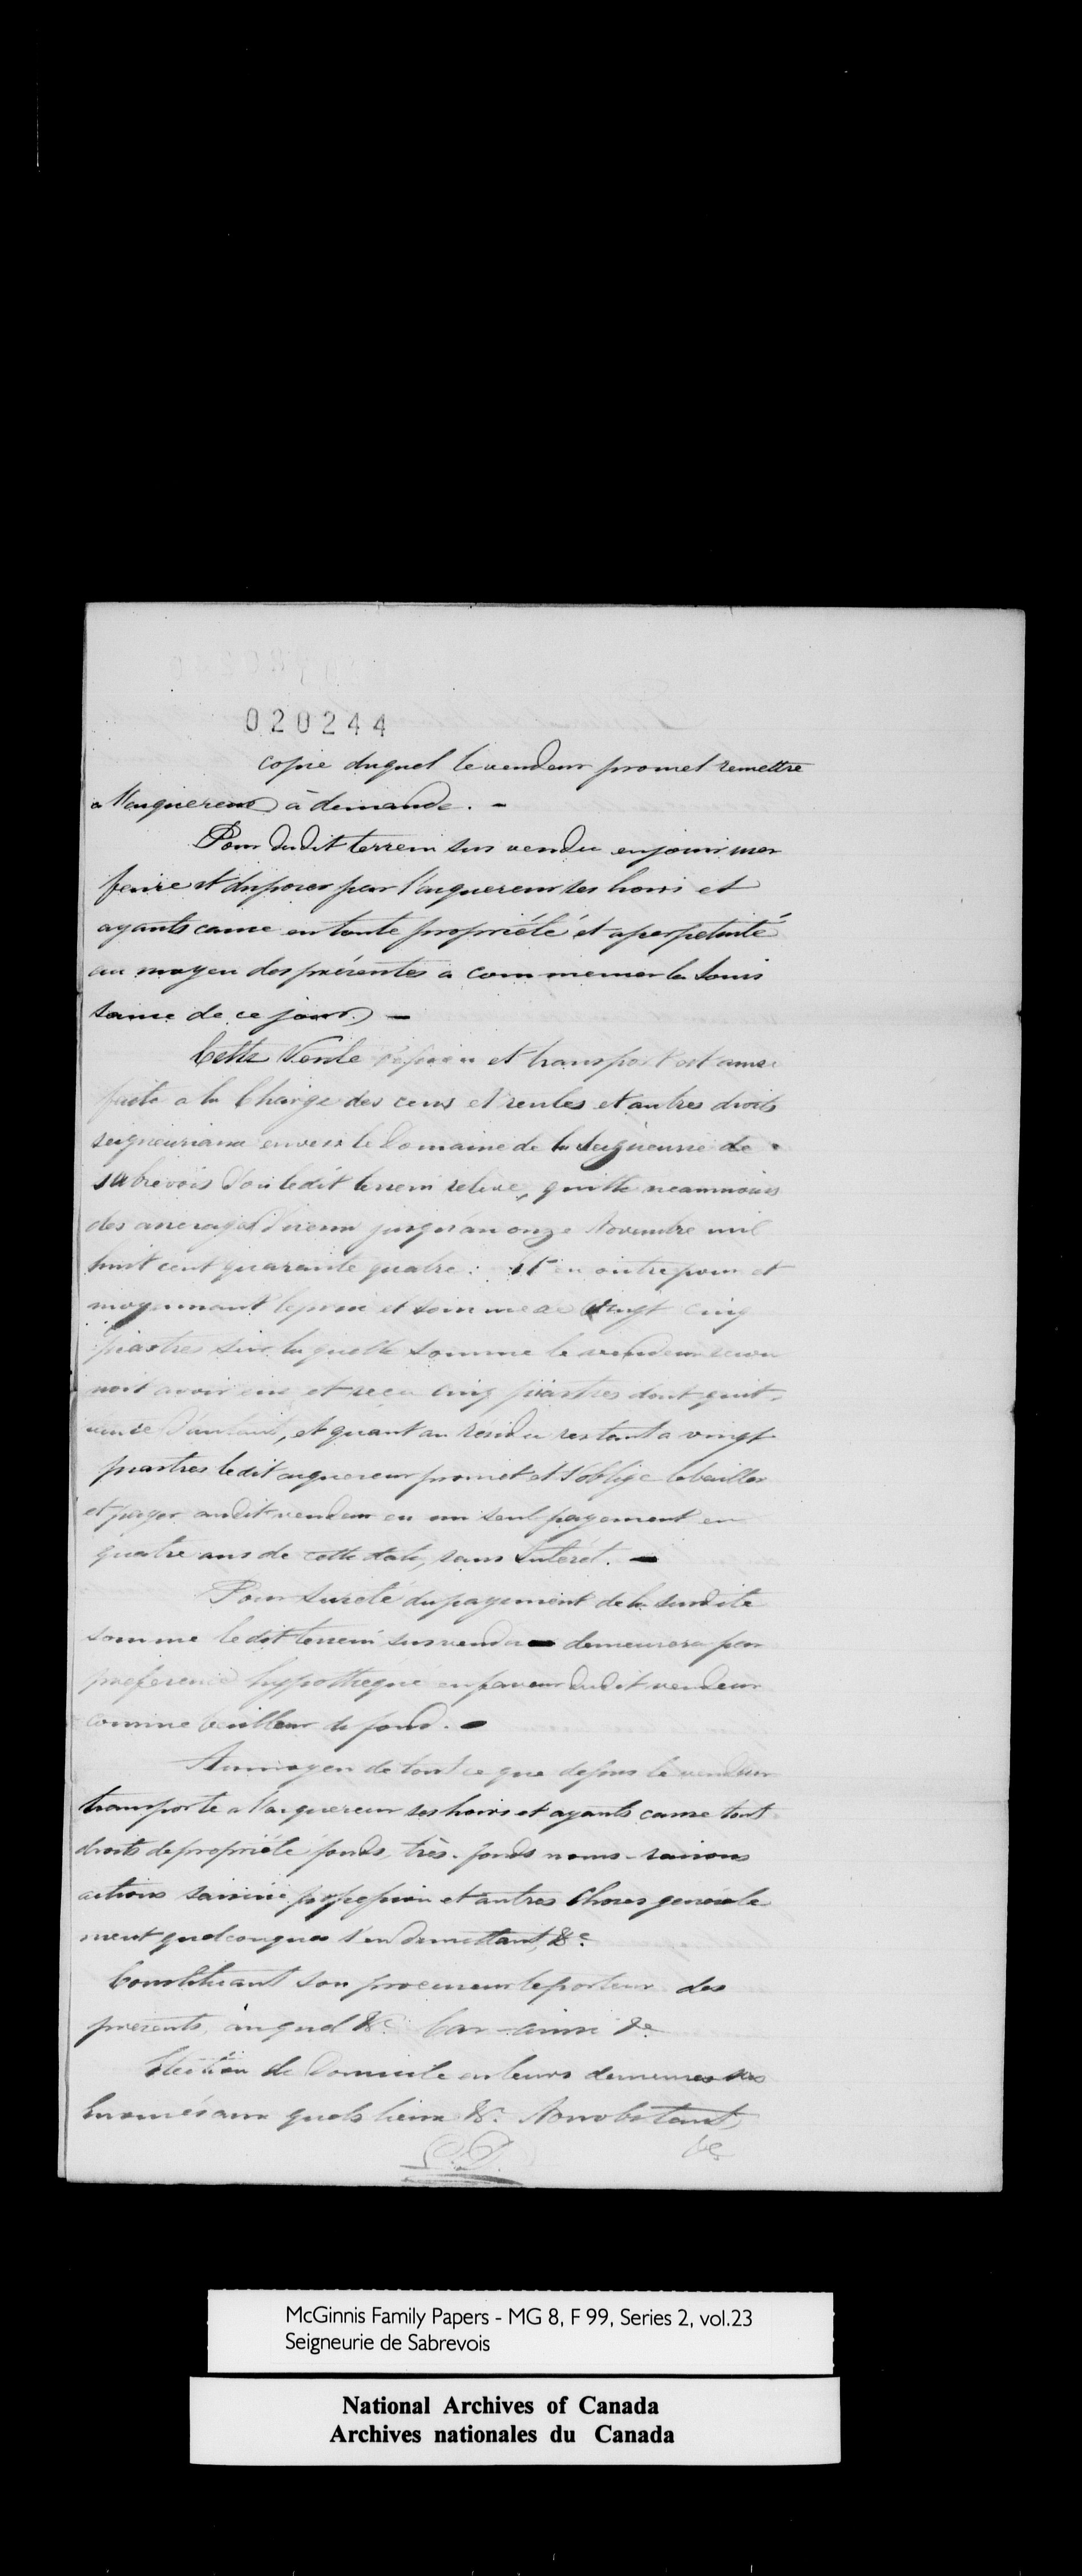 020244
copie duquel le vendeur promet remettre
a l'acquereur à demande. -
Pour dudit terrein sus vendu en jouir user
faire et disposer par l'acquereur ses hoirs et
ayants cause en toute propriété et a perpetuité
au moyen des présentes a commencer la Jouis
sance de ce jour. -
Cette Vente cession et transport est ainsi
faite a la Charge des cens et rentes et autres droits
seigneuriaux envers le Domaine de la Seigneurie de
Sabrevois d'ou ledit terrein releve, quitte neammoins
des arrerages d'iceux jusqu'au onze Novembre mil
huit cent quarante quatre : Et en outre pour et
moyennant le prix et somme de vingt cinq
piastres sur laquelle somme le vendeur recon
noit avoir eue et reçu cinq piastres dont quit-
tance d'autant, et quant au résidu restant a vingt
piastres ledit acquereur promet et s'oblige le bailler
et payer audit vendeur en un seul payement en
quatre ans de cette date, sans Intérêt. -
Pour sureté du payement de la susdite
somme ledit terrein sus vendu demeurera par
preference hypothequé en faveur dudit vendeur
comme bailleur de fond. -
Au moyen de tout ce que dessus le vendeur
transporte a l'acquereur ses hoirs et ayants cause tout
droits de propriété fonds, très-fonds noms-raisons
actions saisine possession et autres Choses generale
ment quelconques s'en demettant, &c.
Constituant son procureur le porteur des
presents, auquel &c. Car-ainsi &c
Election de Domicile en leurs demeures sus
enoncés aux quels lieux &c. Nonobstant,
&c